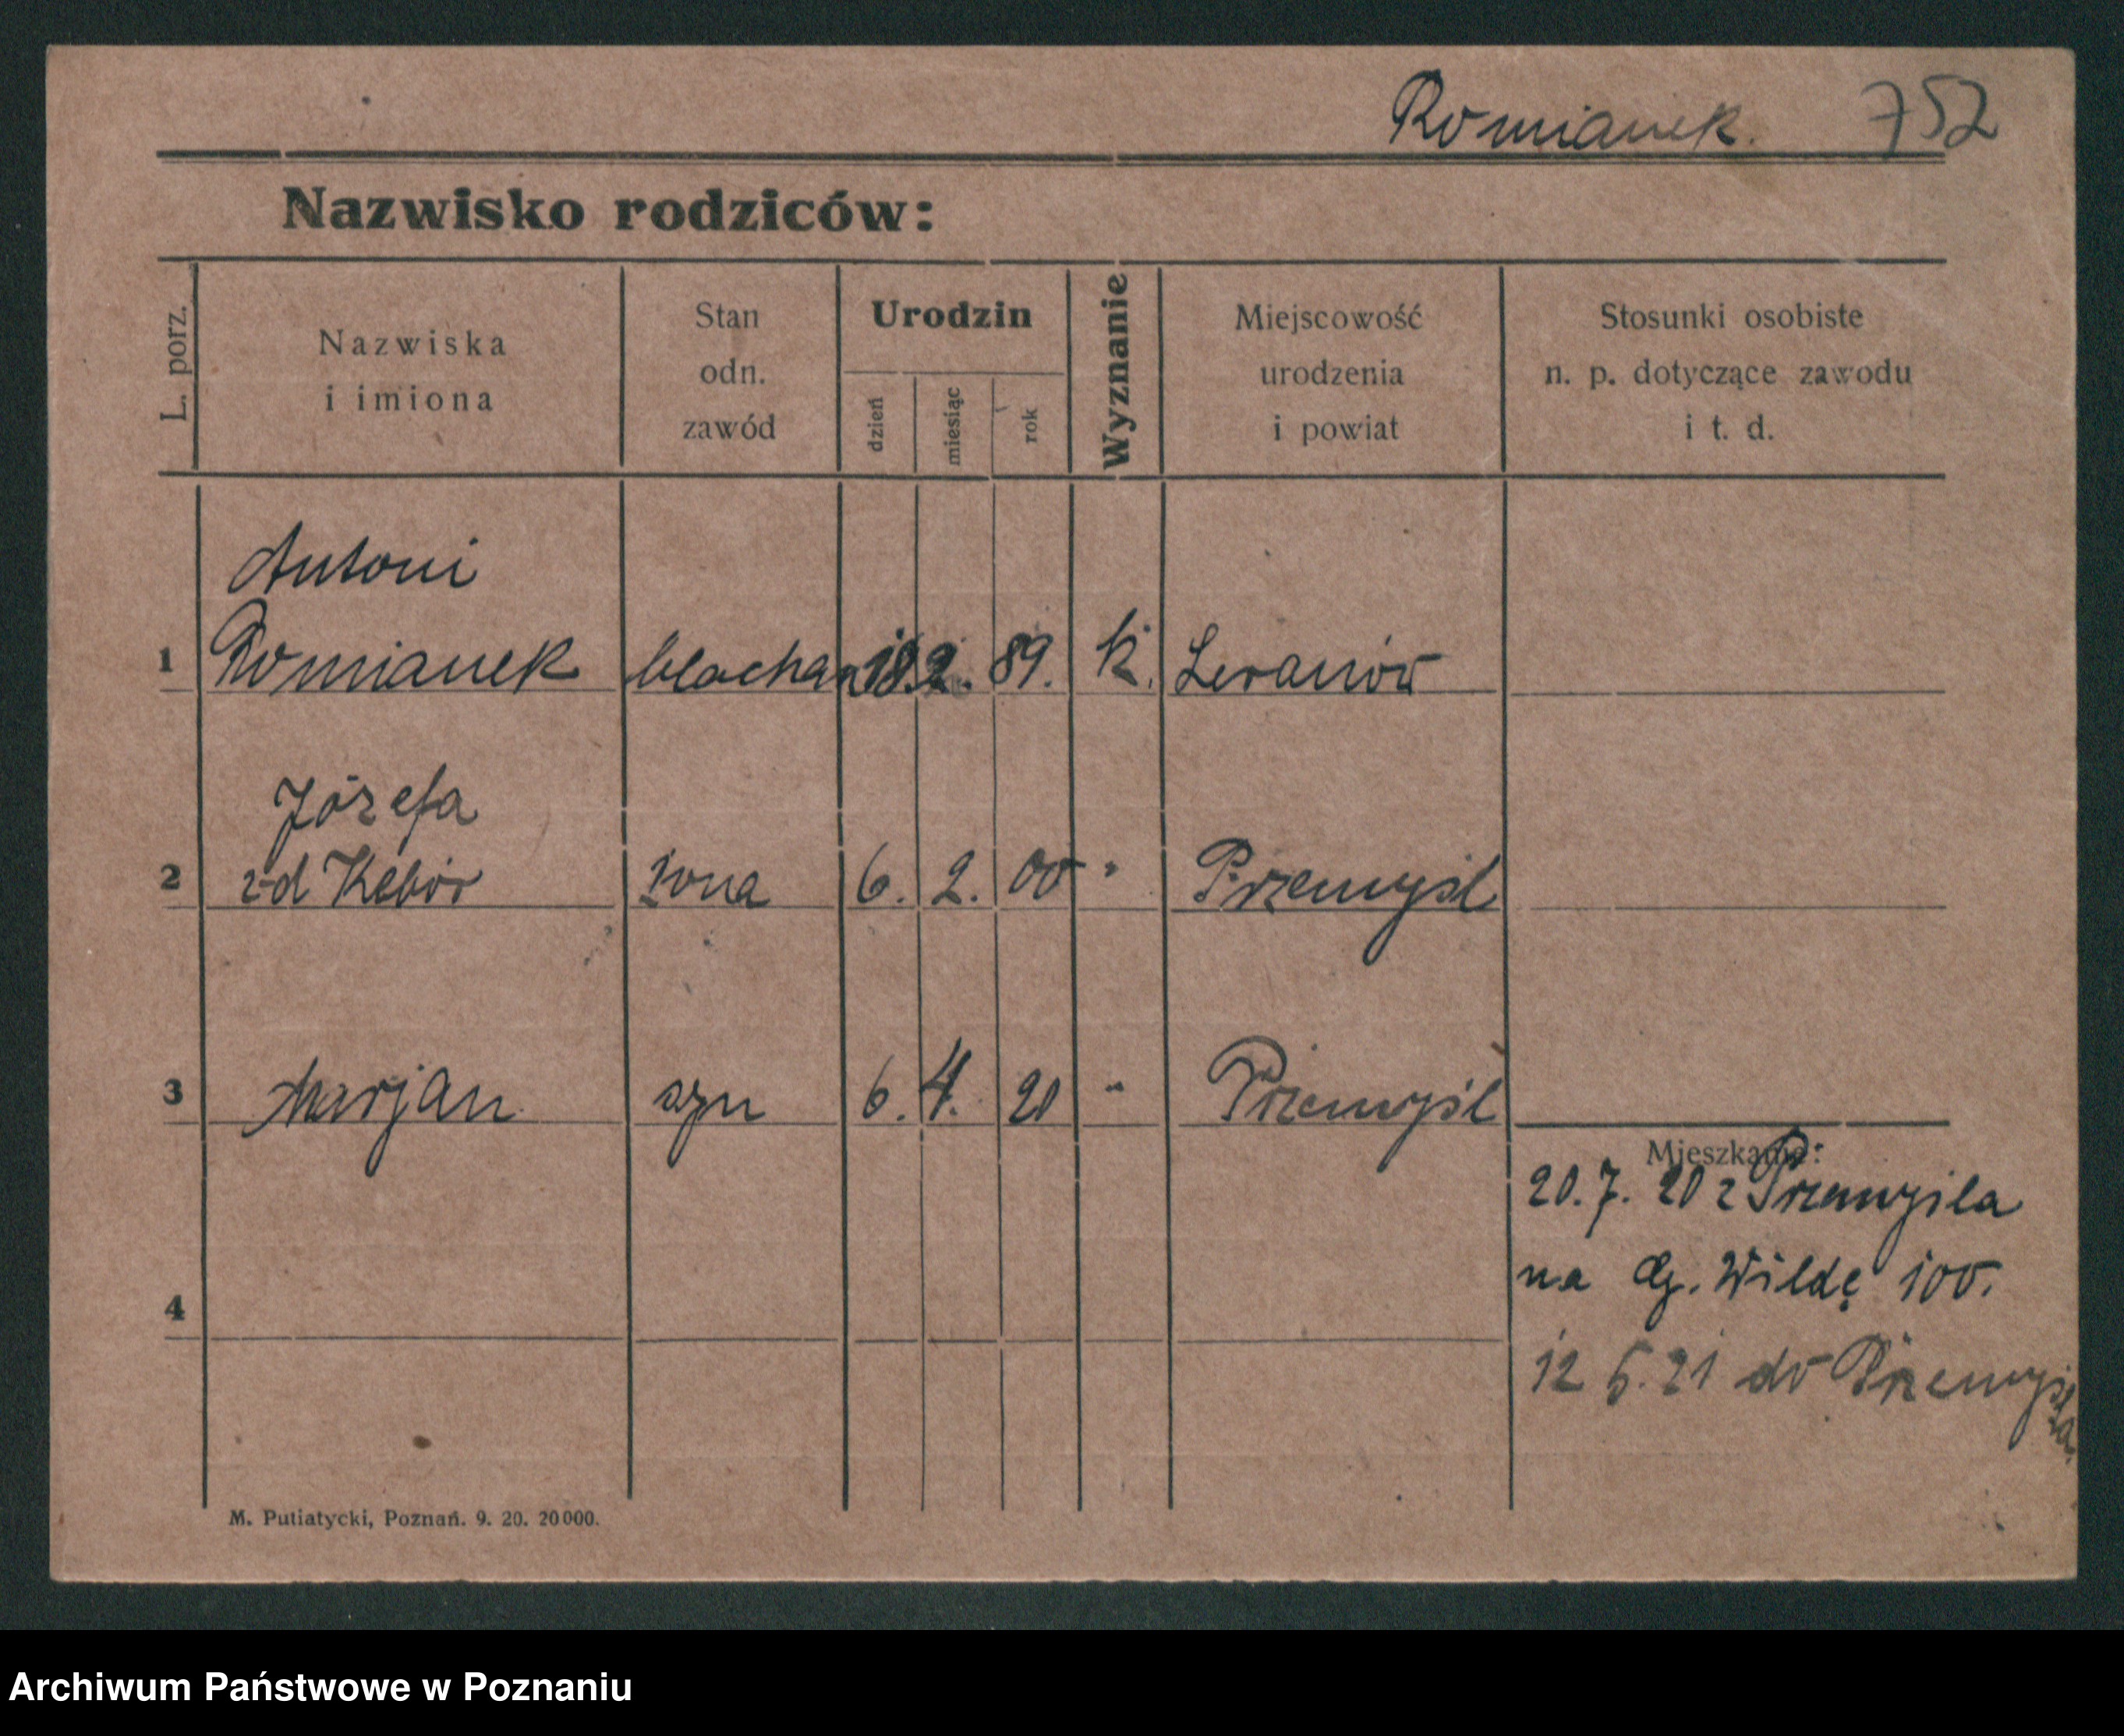 Romianek. 752
Nazwisko rodziców:
L. porz.
Nazwiska
i imiona
Stan
odn.
zawód
Urodzin
dzień
miesiąc
rok
Wyznanie
Miejscowość
urodzenia
i powiat
Stosunki osobiste
n. p. dotyczące zawodu
i t. d.
Antoni
1 Romianek blacharz 18. 2. 89. k.
Józefa
2 żona 6. 2. 00 " Przemyśl
3 Marjan syn 6. 4. 20 " Przemyśl
Mieszkanie:
20. 7. 20 z Przemyśla
na Wildę 100.
4
12 5. 21 do Przemyśla.
M. Putiatycki, Poznań. 9. 20. 20000.
Archiwum Państwowe w Poznaniu